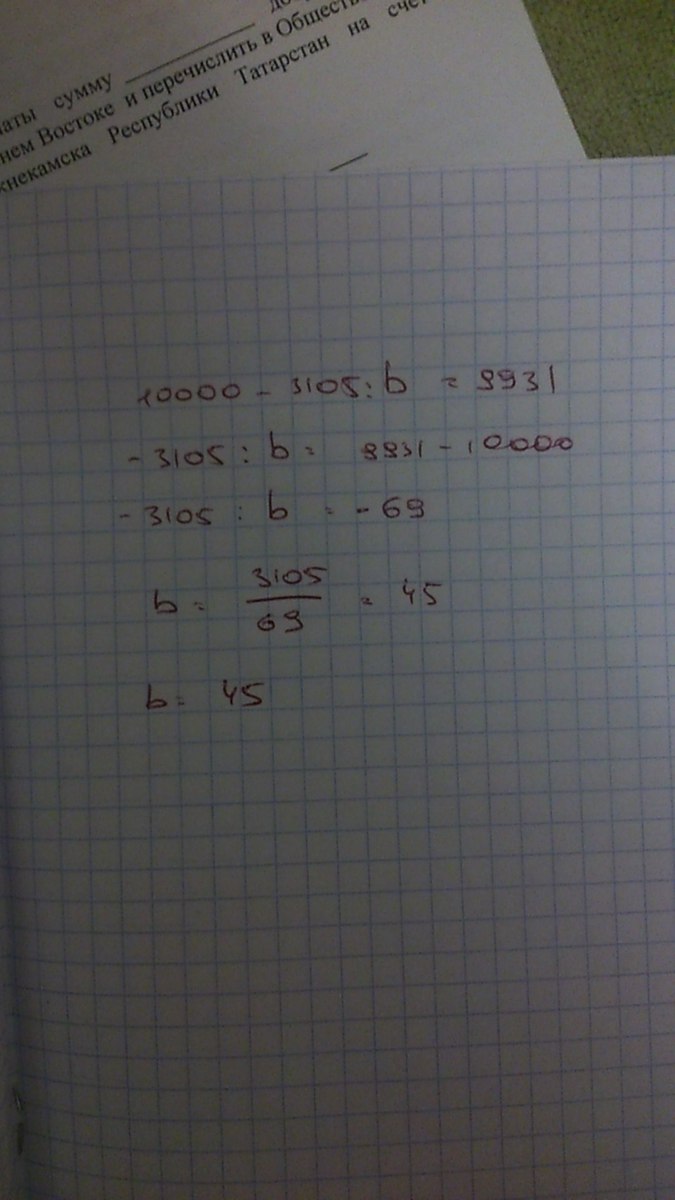 сумму
нем Востоке и перечислить в
Республики Татарстан на
10000 - 3105 : b = 9931
-3105 : b = 9931 - 10000
-3105 : b = -69
b = 3105/69 = 45
b = 45